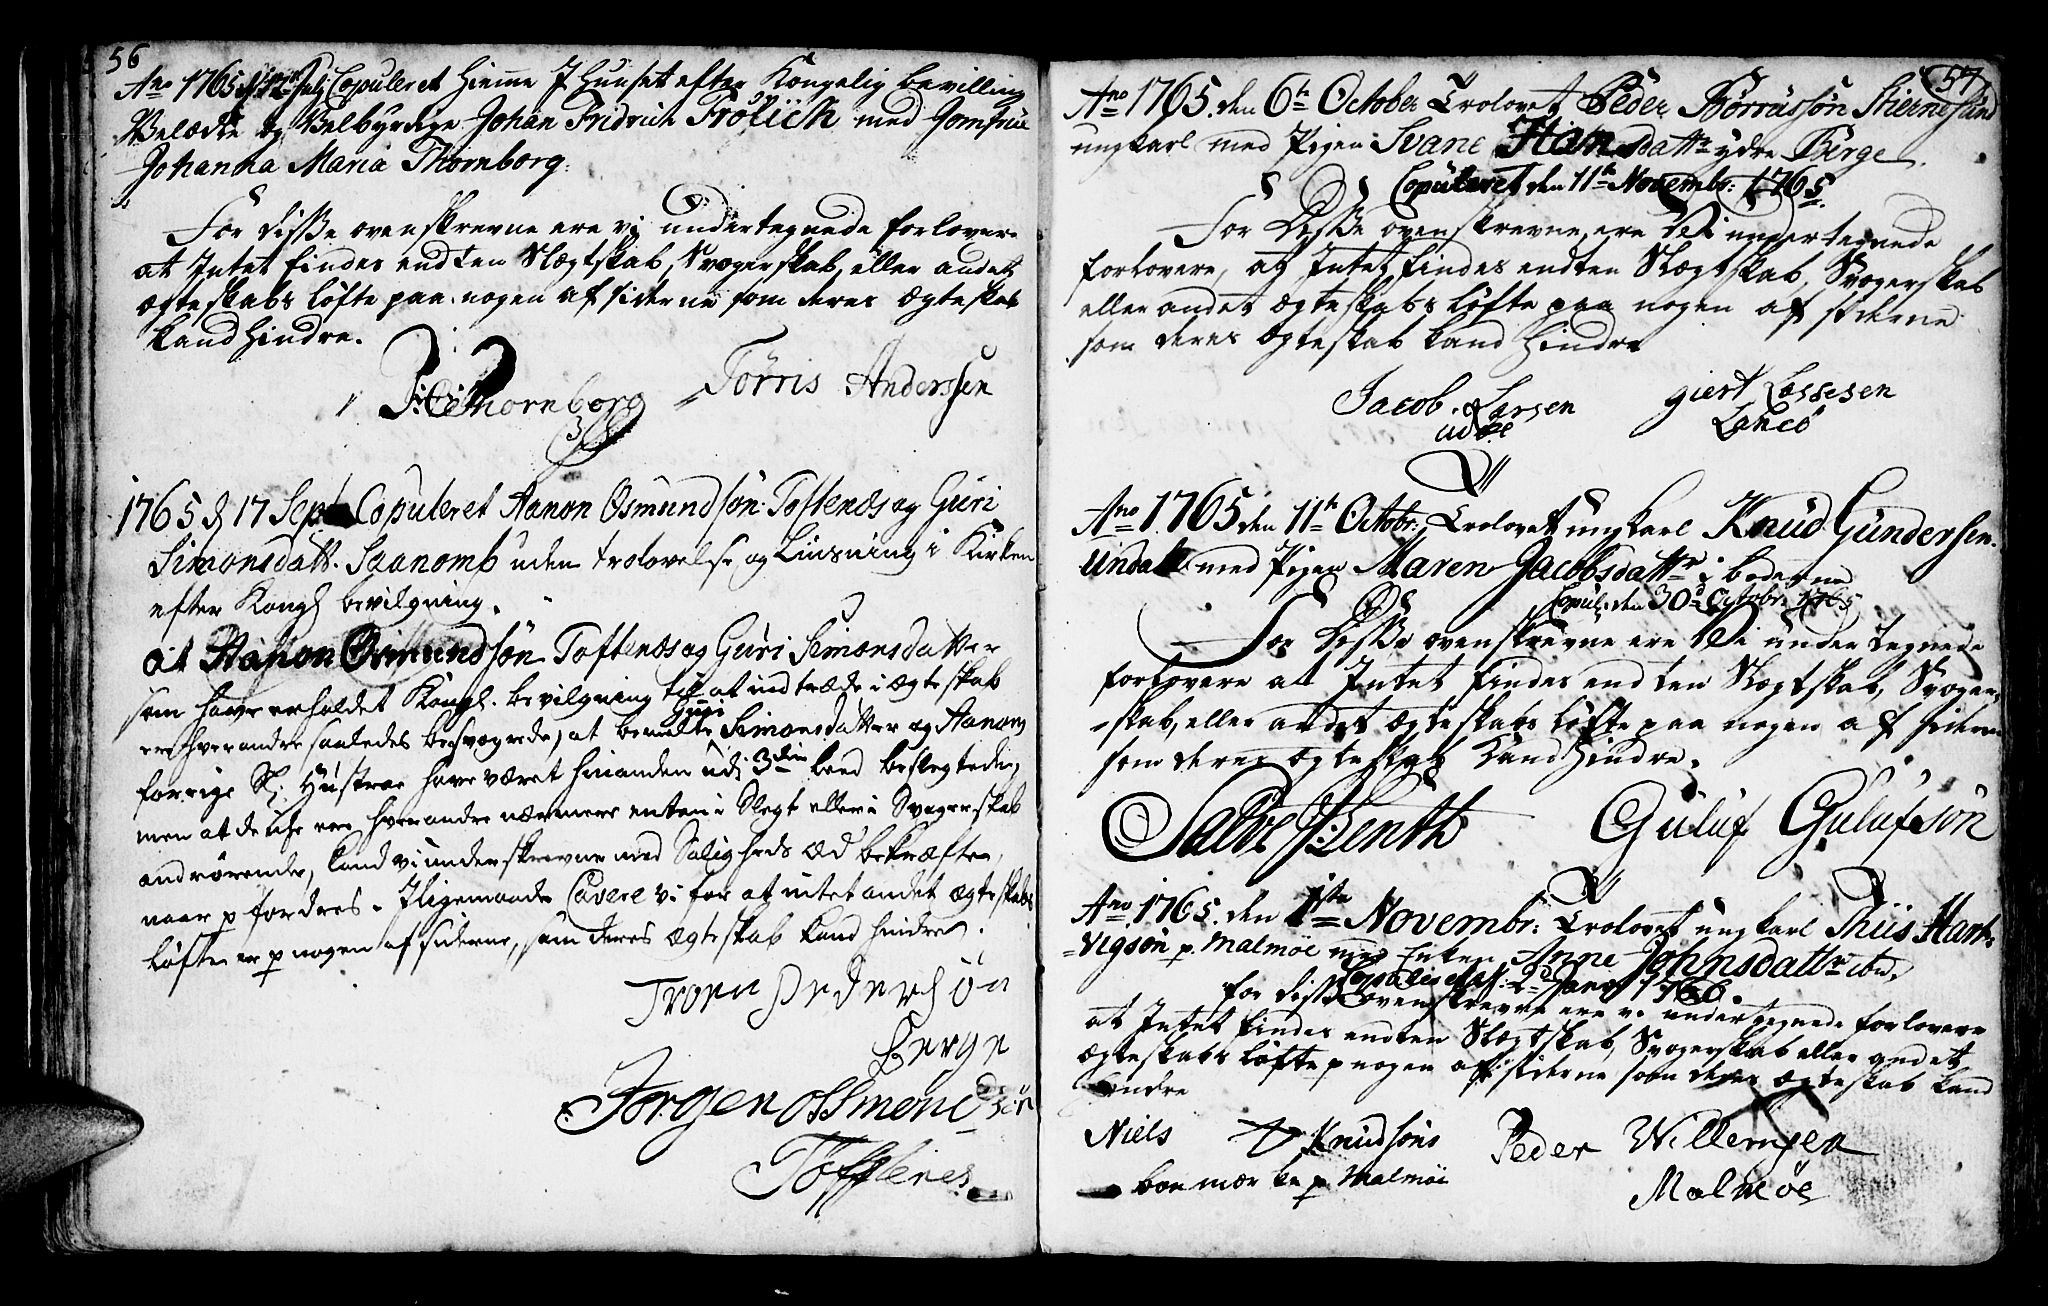 56
Ano 1765 d Julj Copuleret Hieme I Huuset efter Kongelig bevilling
Velædle og Velbyrdige Johan Fridrich Frölich med Jomfrue
Johanna Maria Thornborg.
For disse ovenskrevne ere vi undertegnede forlovere
at Intet findes endten Slægtskab, Svogerskab, eller andet
ægteskabs løfte paa nogen af siderne som deres Ægteskab
kand hindre.
Thornborg Törris Anderssen
1765 d 17 Sept Copuleret Aanon Osmundsön Toftenes og Guri
Simonsdatt. Saanomb uden trolovelse og Liusning i Kirken
efter Kongl bevilgning.
at Aanon Osmundsön Toftenes og Guri Simonsdatter
som have erholdet Kongl. bevilgning til at indtræde i ægteskab
ere hverandre saaledes besvogrede, at bemelte Guri Simonsdatter og Aanons
forrige Sl: Hustroe have været hinanden udi 3die leed beslegtede,
men at de ikke ere hverandre nærmere enten i Slegt eller i Svogerskab
andrørende, kand vi underskrevne med Saligheds Æd bekræfte,
naar p fordres. Iligemaade Cavere vi for at intet andet ægteskabs
løfte er p nogen af siderne, som deres ægteskab kand hindre.
Troen Pedersön
Berge
Jørgen Ossmondsön
Toftenes
57
Ano 1765. den 6te October Trolovet Peder Börrüssön Stiernesund
ungkarl med Pigen Svane Hansdattr ydre Berge.
Copuleret den 11te Novembr: 1765.
For Disse ovenskrevne, ere Vi undertegnede
forlovere, at Intet findes endten Slægtskab, Svogerskab
eller andet ægteskabs løfte paa nogen af siderne
som deres Ægteskab kand hindre
Jacob Larsen giert Lassesen
udöe Lanöe
Ano 1765 den 11te Octobr: Trolovet ungkarl Knud Gundersen
Undal med Pigen Maren Jacobsdattr i boderne
Copul: den 30d Octobr: 1765
For Disse ovenskrevne ere Vi undertegnede
forlovere at Intet findes endten Slægtskab, Svoger-
skab, eller andet ægteskabs løfte paa nogen af siderne
som deres ægteskab kand hindre.
Salve Penth Guluf Gulufsön
Ano 1765. den 1ste Novembr: Trolovet ungkarl Thiis Hart-
vigsön p. Malmöe med Enken Anne Johnsdattr ibid.
Copuleret d. 2d Janv 1766.
for disse ovenskrevne ere vi undertegnede forlovere
at Intet findes endten Slægtskab, Svogerskab eller andet
ægteskabs løfte p nogen af siderne som deres ægteskab kand
hindre
Niels Knudsöns Peder Willemsen
boemærke p Malmöe Malmöe